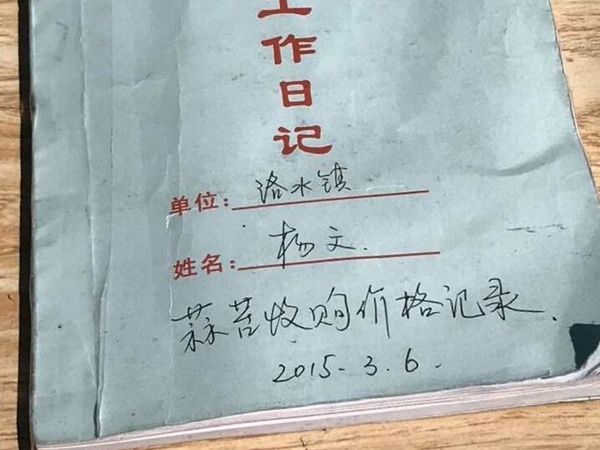 工作日记
单位：洛水镇
姓名：杨文.
蒜苔收购价格记录.
2015-3.6.